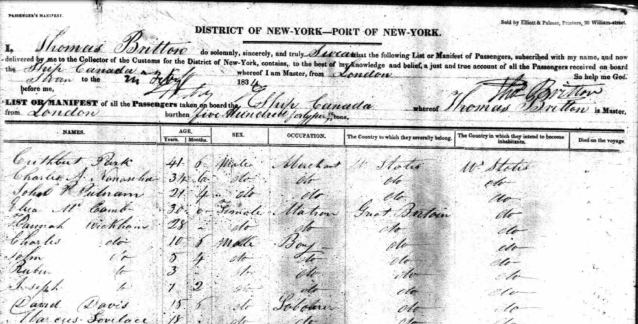 PASSENGER'S MANIFEST.
Sold by Elliott & Palmer, Printers, 20 William-street.
DISTRICT OF NEW-YORK—PORT OF NEW-YORK.
I, Thomas Britton do solemnly, sincerely, and truly Swear that the following List or Manifest of Passengers, subscribed with my name, and now
delivered by me to the Collector of the Customs for the District of New-York, contains, to the best of my knowledge and belief, a just and true account of all the Passengers received on board
the Ship Canada whereof I am Master, from London So help me God.
to the 183
before me, Thos Britton
LIST OR MANIFEST of all the Passengers taken on board the Ship Canada whereof Thomas Britton is Master,
from London burthen five Hundred tons,
NAMES. AGE. SEX. OCCUPATION. The Country to which they severally belong. The Country in which they intend to become inhabitants. Died on the voyage.
Years. Months.
Cuthbert Park 41 6 Male Merchant U States U States
Charles A. 34 6 do do do do
John Putnam 21 4 do do do do
Mc 30 0 Female Matron Great Britain do
Hannah Wickham 28 - do do do do
Charles do 10 6 Male Boy do do
John do 5 4 do do do do
Rubin do 3 - do do do do
Joseph do 1 2 do do do do
David Davis 15 5 do Labourer do do
Marcus Lovelace 18 do do do do